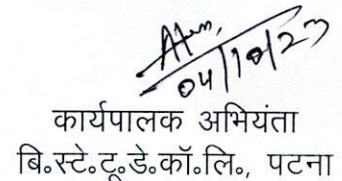 04/10/23
कार्यपालक अभियंता
बि॰स्टे॰टू॰डे॰कॉ॰लि॰, पटना